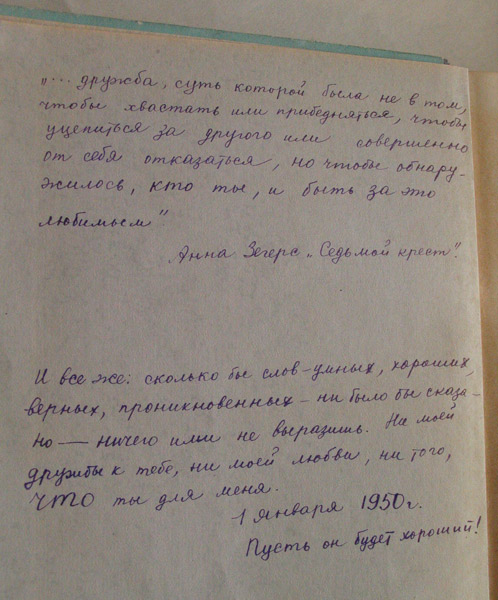 „... дружба, суть которой была не в том,
чтобы хвастать или прибедняться, чтобы
уцепиться за другого или совершенно
от себя отказаться, но чтобы обнару-
жилось, кто ты, и быть за это
любимым"
Анна Зегерс „Седьмой крест".
И все же: сколько бы слов – умных, хороших,
верных, проникновенных – ни было бы сказа-
но — ничего ими не выразишь. Ни моей
дружбы к тебе, ни моей любви, ни того,
что ты для меня.
1 января 1950 г.
Пусть он будет хороший!